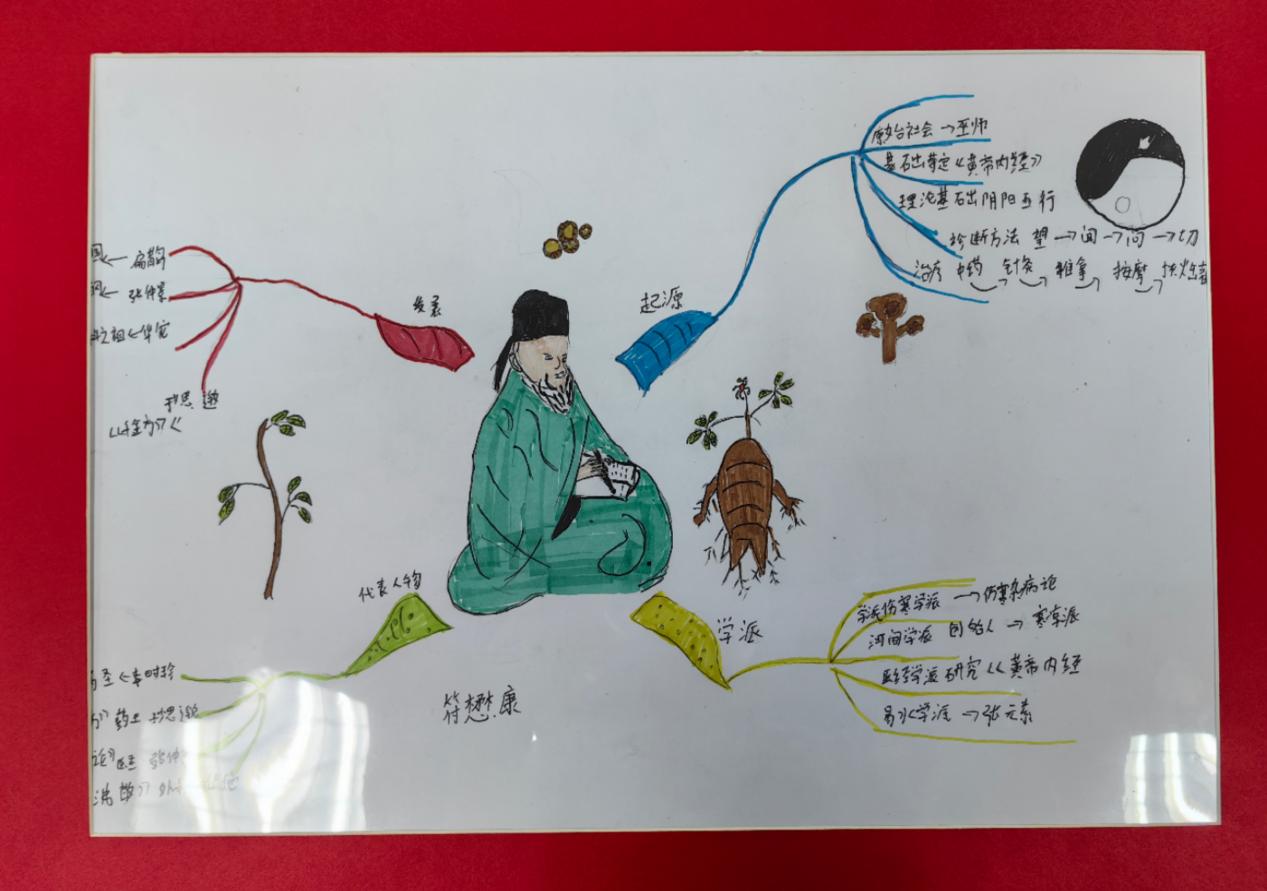 起源
原始社会→巫师
基石出奠定《黄帝内经》
理论基石出阴阳五行
诊断方法 望→闻→问→切
治疗 中药 针灸 推拿 按摩 拔火罐
发展
国←扁鹊
←张仲景
之祖←华佗
孙思邈
《千金方》
代表人物
圣←李时珍
药王 孙思邈
医圣 张仲
学派
学派伤寒学派→伤寒杂病论
河间学派 创始人→寒凉派
医经学派 研究《黄帝内经
易水学派→张元素
符懋康